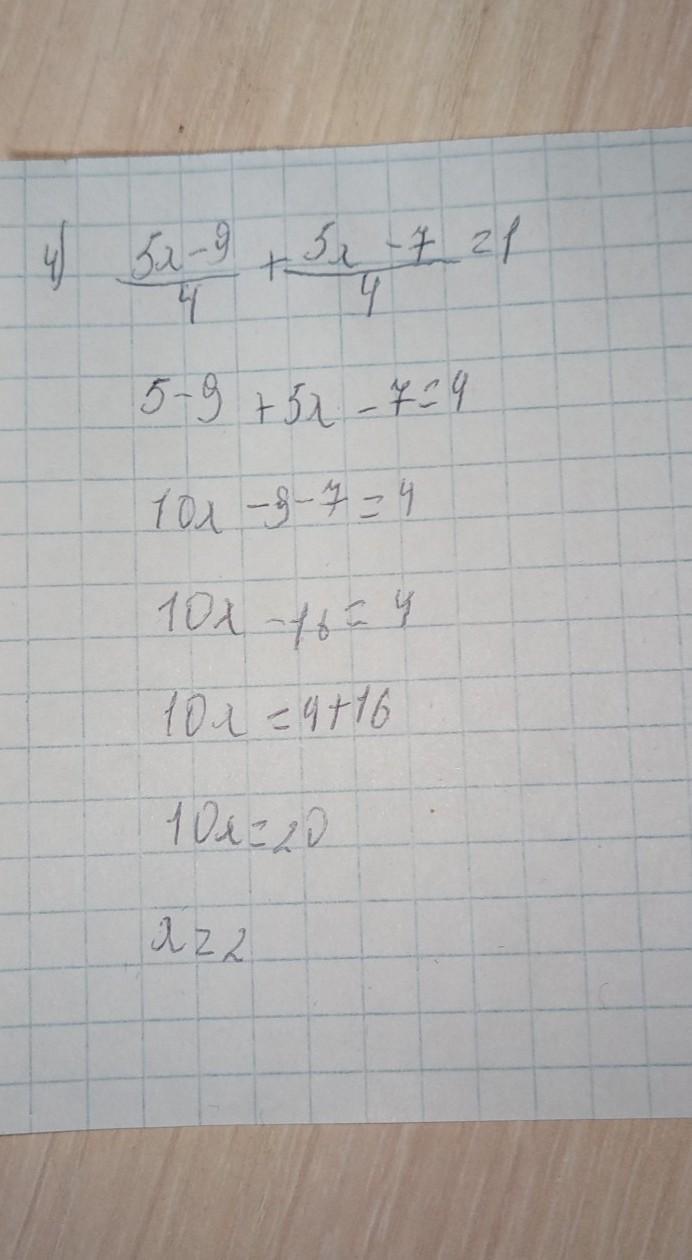 4) (5x-9)/4 + (5x-7)/4 = 1
5-9+5x-7=4
10x-9-7=4
10x-16=4
10x=4+16
10x=20
x=2